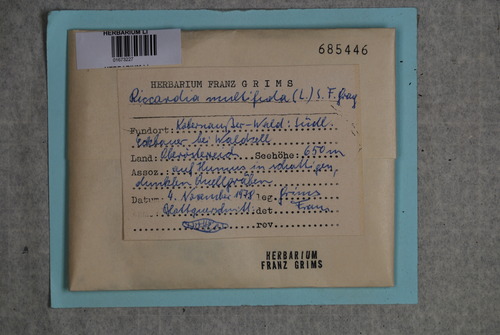 HERBARIUM LI
685446
HERBARIUM FRANZ GRIMS
Riccardia multifida (L.) S. F. Gray
Fundort: Kobernaußer-Wald: Südl.
bei Waldzell
Land: Oberösterreich Seehöhe: 650 m
Assoz. auf Humus in schattigen,
dunklen Quellgräben
Datum 4. November 1978 leg. Grims
det. Franz
rev.
HERBARIUM
FRANZ GRIMS